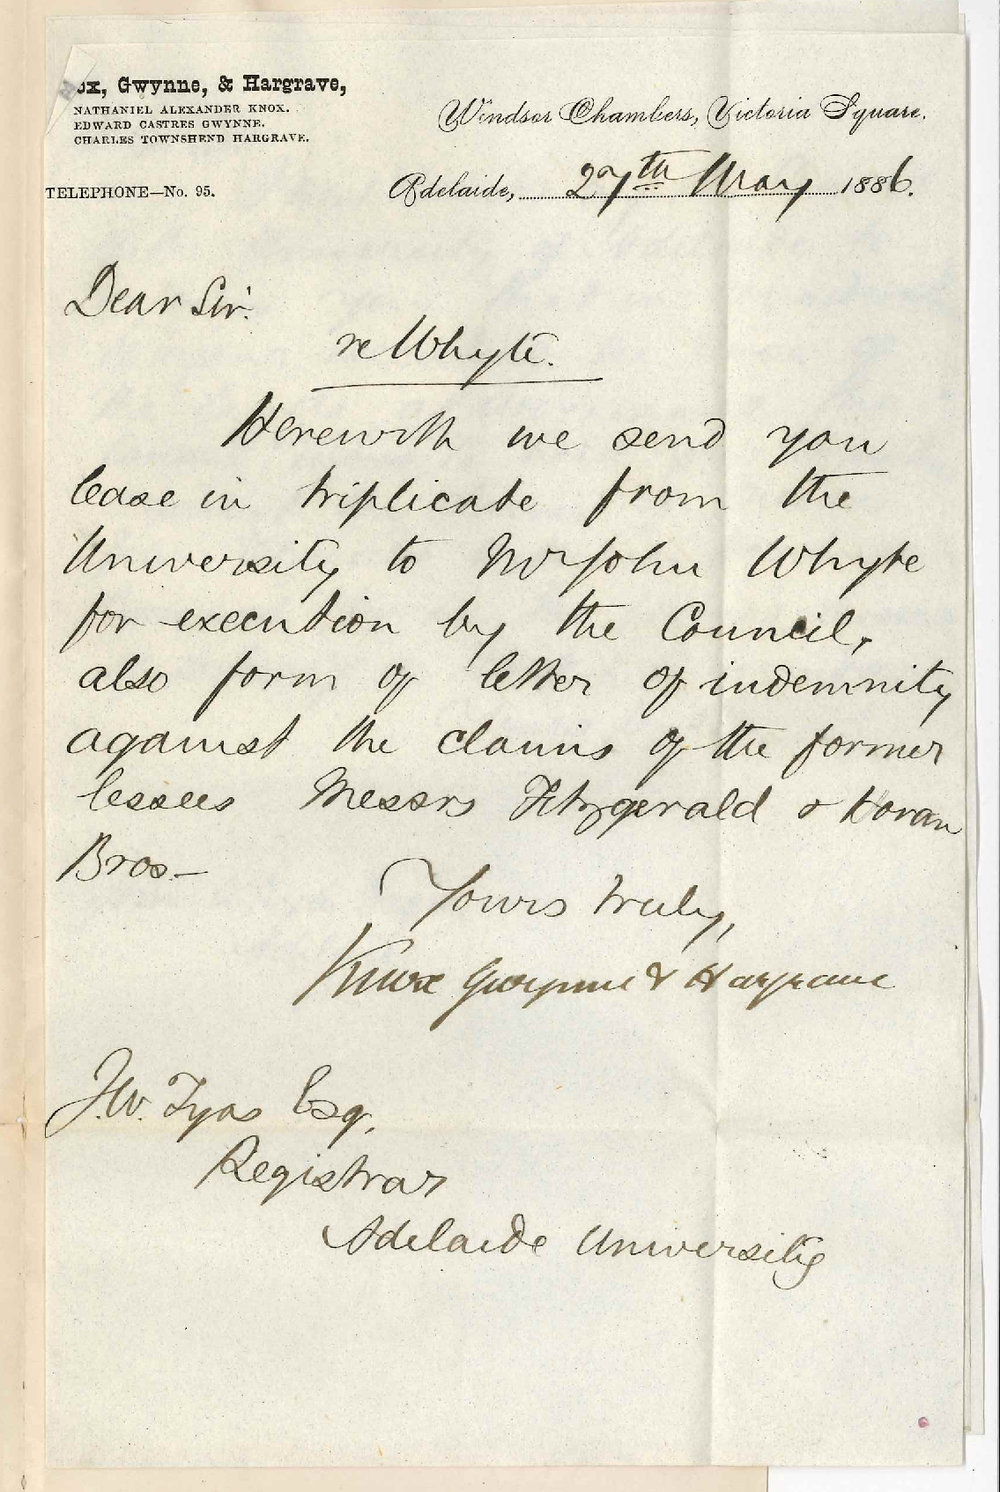 ox, Gwynne, & Hargrave,
NATHANIEL ALEXANDER KNOX.
EDWARD CASTRES GWYNNE.
CHARLES TOWNSHEND HARGRAVE.
TELEPHONE—No. 95.
Windsor Chambers, Victoria Square.
Adelaide, 27th May 1886.
Dear Sir.
re Whyte.
Herewith we send you
lease in triplicate from the
University to Mr John Whyte
for execution by the Council,
also form of letter of indemnity
against the claims of the former
lessees Messrs Fitzgerald & Horan
Bros—
Yours truly,
Knox Gwynne & Hargrave
J.W. Tyas Esq.
Registrar
Adelaide University